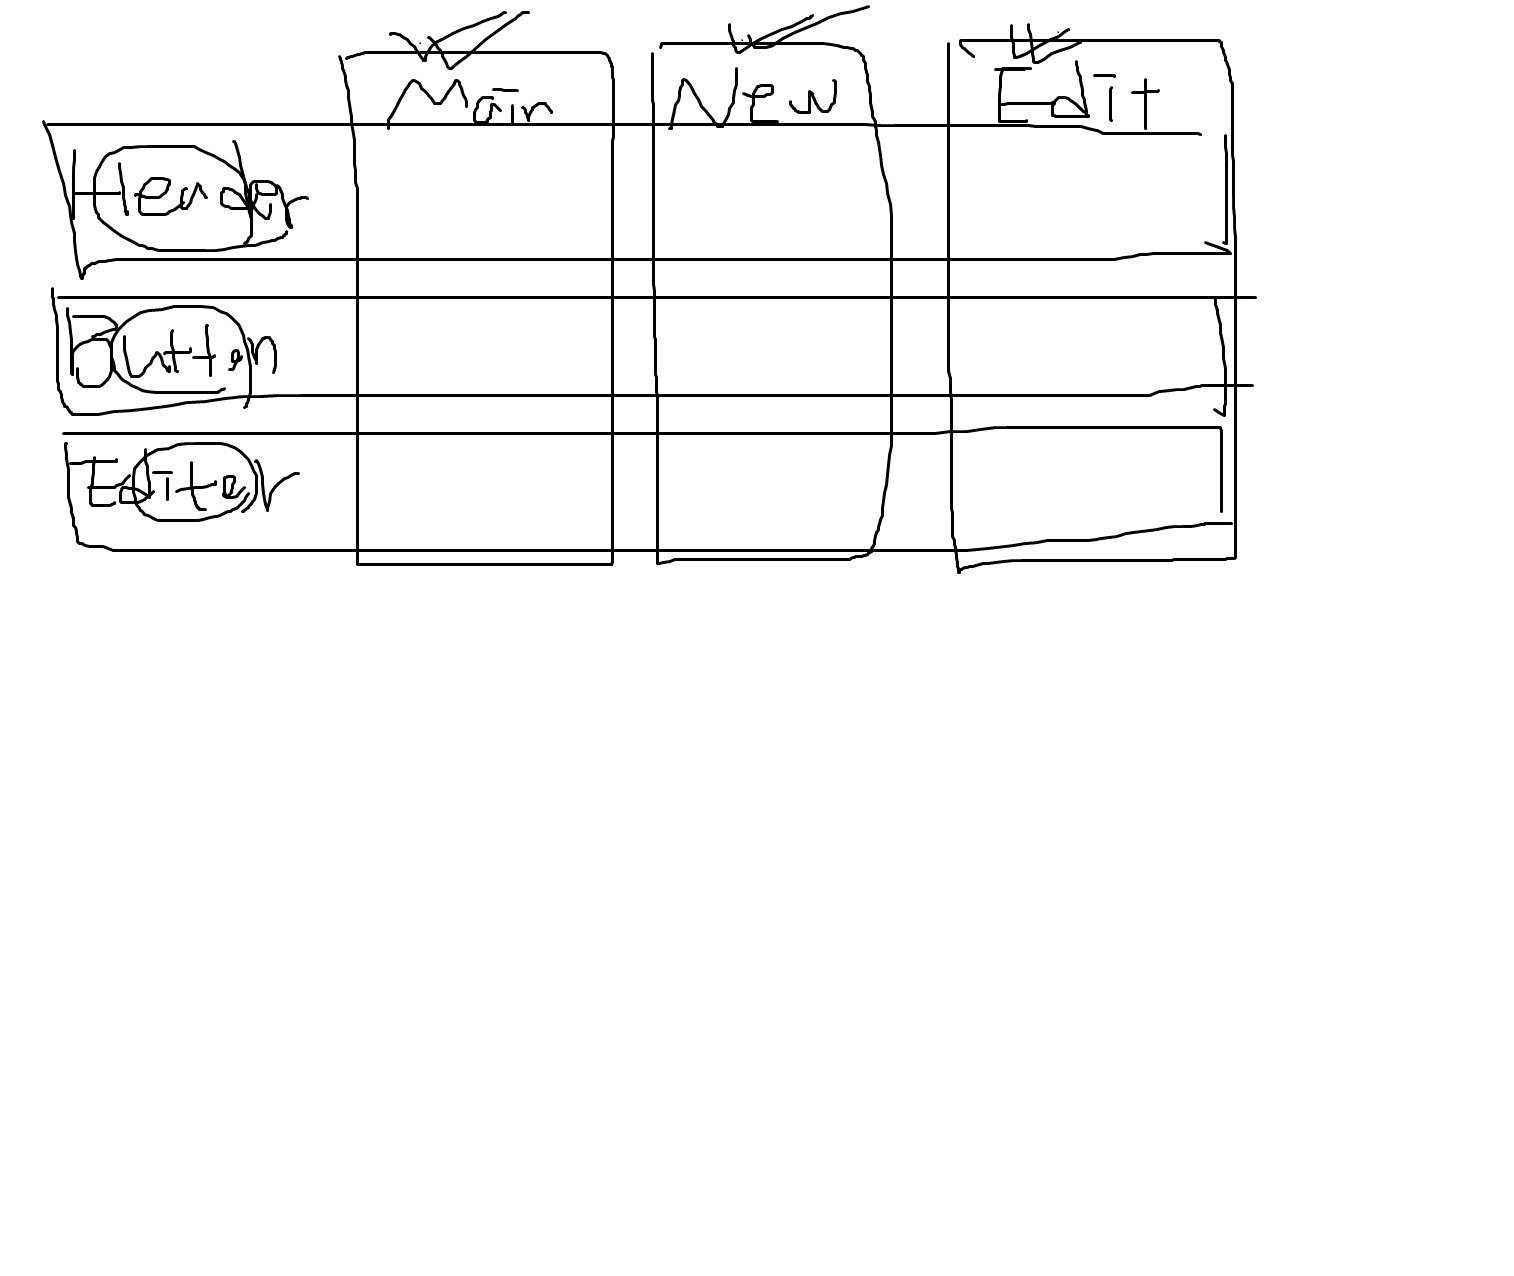 Main New Edit
Header
Button
Editor